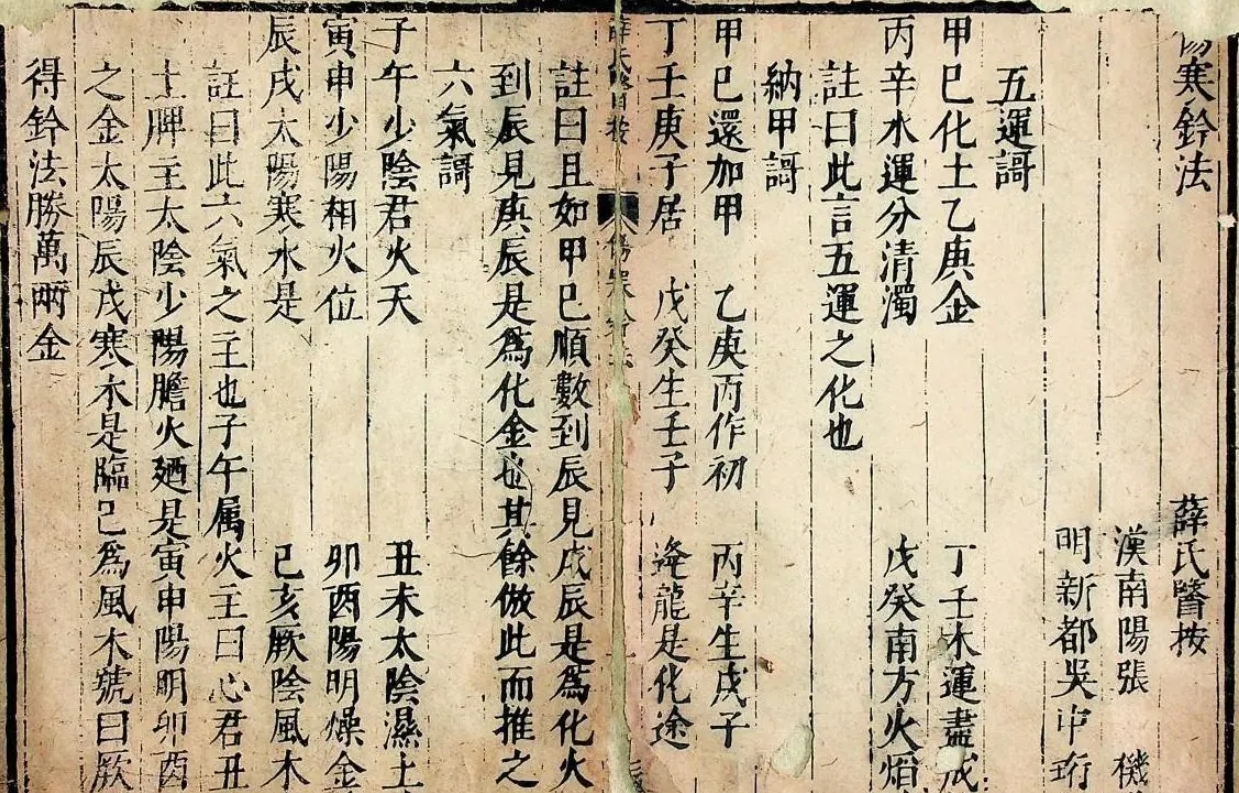 傷寒鈐法
薛氏醫按
漢南陽張 機
明新都吳中珩
五運謌
甲巳化土乙庚金 丁壬木運盡成
丙辛水運分清濁 戊癸南方火焰
註曰此言五運之化也
納甲謌
甲巳還加甲 乙庚丙作初 丙辛生戊子
丁壬庚子居 戊癸生壬子 逄龍是化途
薛氏醫按 傷寒鈐法
註曰且如甲巳順數到辰見戊辰是爲化火
到辰見庚辰是爲化金也其餘倣此而推之
六氣謌
子午少陰君火天 丑未太陰濕土
寅申少陽相火位 卯酉陽明燥金
辰戌太陽寒水是 巳亥厥陰風木
註曰此六氣之主也子午属火主曰心君丑
土脾主太陰少陽膽火廼是寅申陽明卯酉
之金太陽辰戌寒水是臨巳爲風木號曰厥
得鈐法勝萬兩金